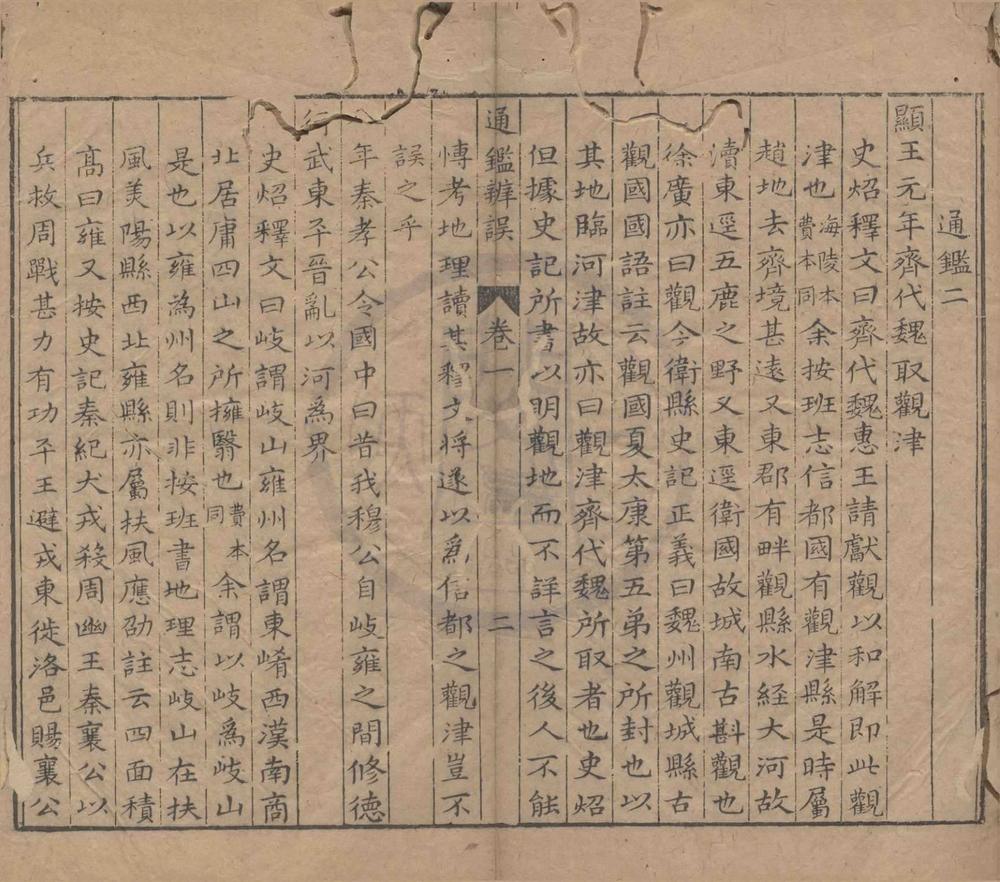 通鑑二
顯王元年齊伐魏取觀津
史炤釋文曰齊伐魏惠王請獻觀以和解即此觀
津也海陵本費本同余按班志信都國有觀津縣是時屬
趙地去齊境甚遠又東郡有畔觀縣水經大河故
瀆東逕五鹿之野又東逕衛國故城南古斟觀也
徐廣亦曰觀今衛縣史記正義曰魏州觀城縣古
觀國國語註云觀國夏太康第五弟之所封也以
其地臨河津故亦曰觀津齊伐魏所取者也史炤
但據史記所書以明觀地而不詳言之後人不能
通鑑辨誤 卷一 二
慱考地理讀其釋文將遂以爲信都之觀津豈不
誤之乎
年秦孝公令國中曰昔我穆公自岐雍之間修德
行武東平晉亂以河爲界
史炤釋文曰岐謂岐山雍州名謂東崤西漢南商
北居庸四山之所擁翳也費本同余謂以岐爲岐山
是也以雍爲州名則非按班書地理志岐山在扶
風美陽縣西北雍縣亦屬扶風應劭註云四面積
高曰雍又按史記秦紀犬戎殺周幽王秦襄公以
兵救周戰甚力有功平王避戎東徙洛邑賜襄公